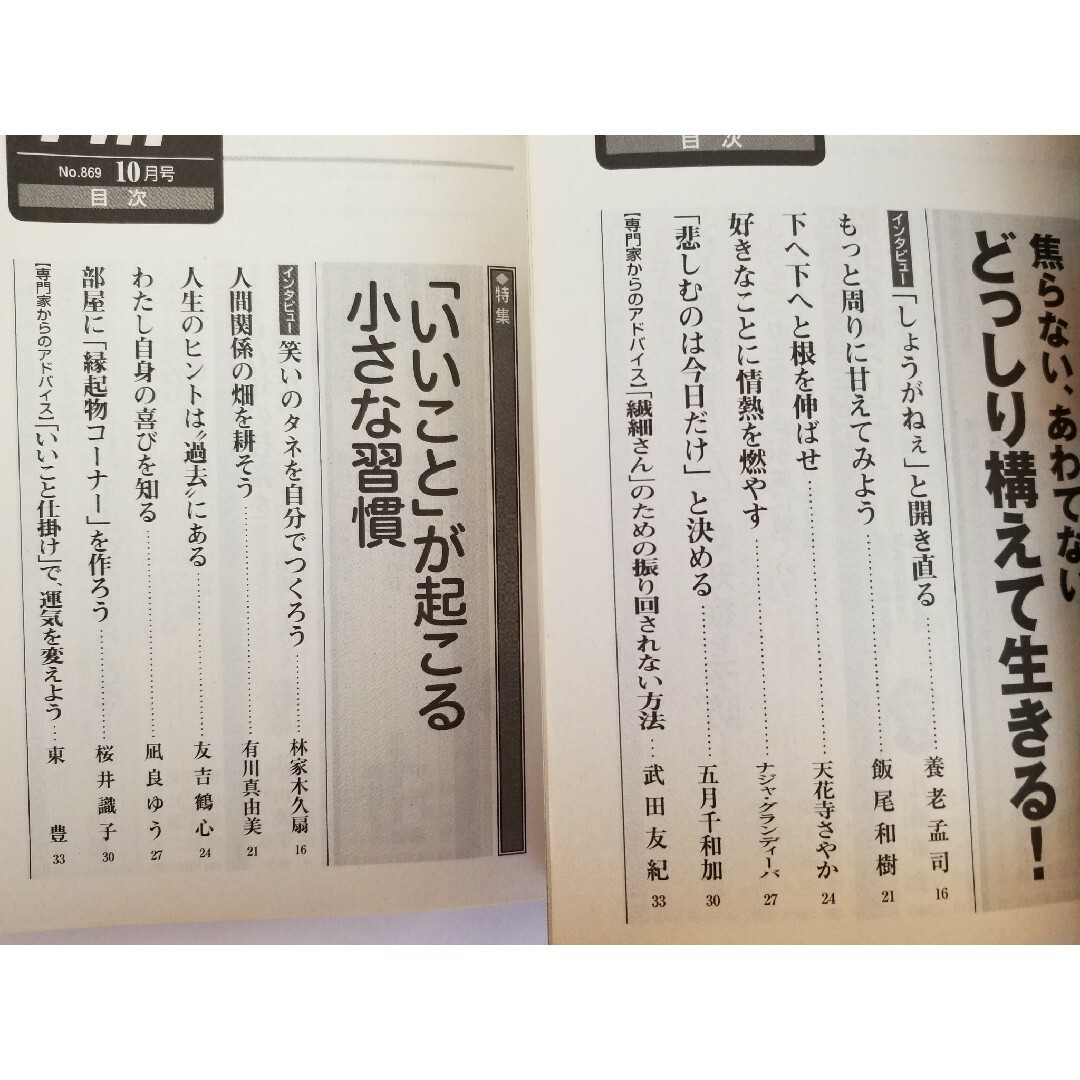 No.869 10月号
目次
◆特集
「いいこと」が起こる
小さな習慣
インタビュー 笑いのタネを自分でつくろう…………林家木久扇 16
人間関係の畑を耕そう…………有川真由美 21
人生のヒントは〝過去〟にある…………友吉鶴心 24
わたし自身の喜びを知る…………凪良ゆう 27
部屋に「縁起物コーナー」を作ろう…………桜井識子 30
【専門家からのアドバイス】「いいこと仕掛け」で、運気を変えよう…東 豊 33
目次
焦らない、あわてない
どっしり構えて生きる!
インタビュー 「しょうがねぇ」と開き直る…………養老孟司 16
もっと周りに甘えてみよう…………飯尾和樹 21
下へ下へと根を伸ばせ…………天花寺さやか 24
好きなことに情熱を燃やす…………ナジャ・グランディーバ 27
「悲しむのは今日だけ」と決める…………五月千和加 30
【専門家からのアドバイス】「繊細さん」のための振り回されない方法…武田友紀 33